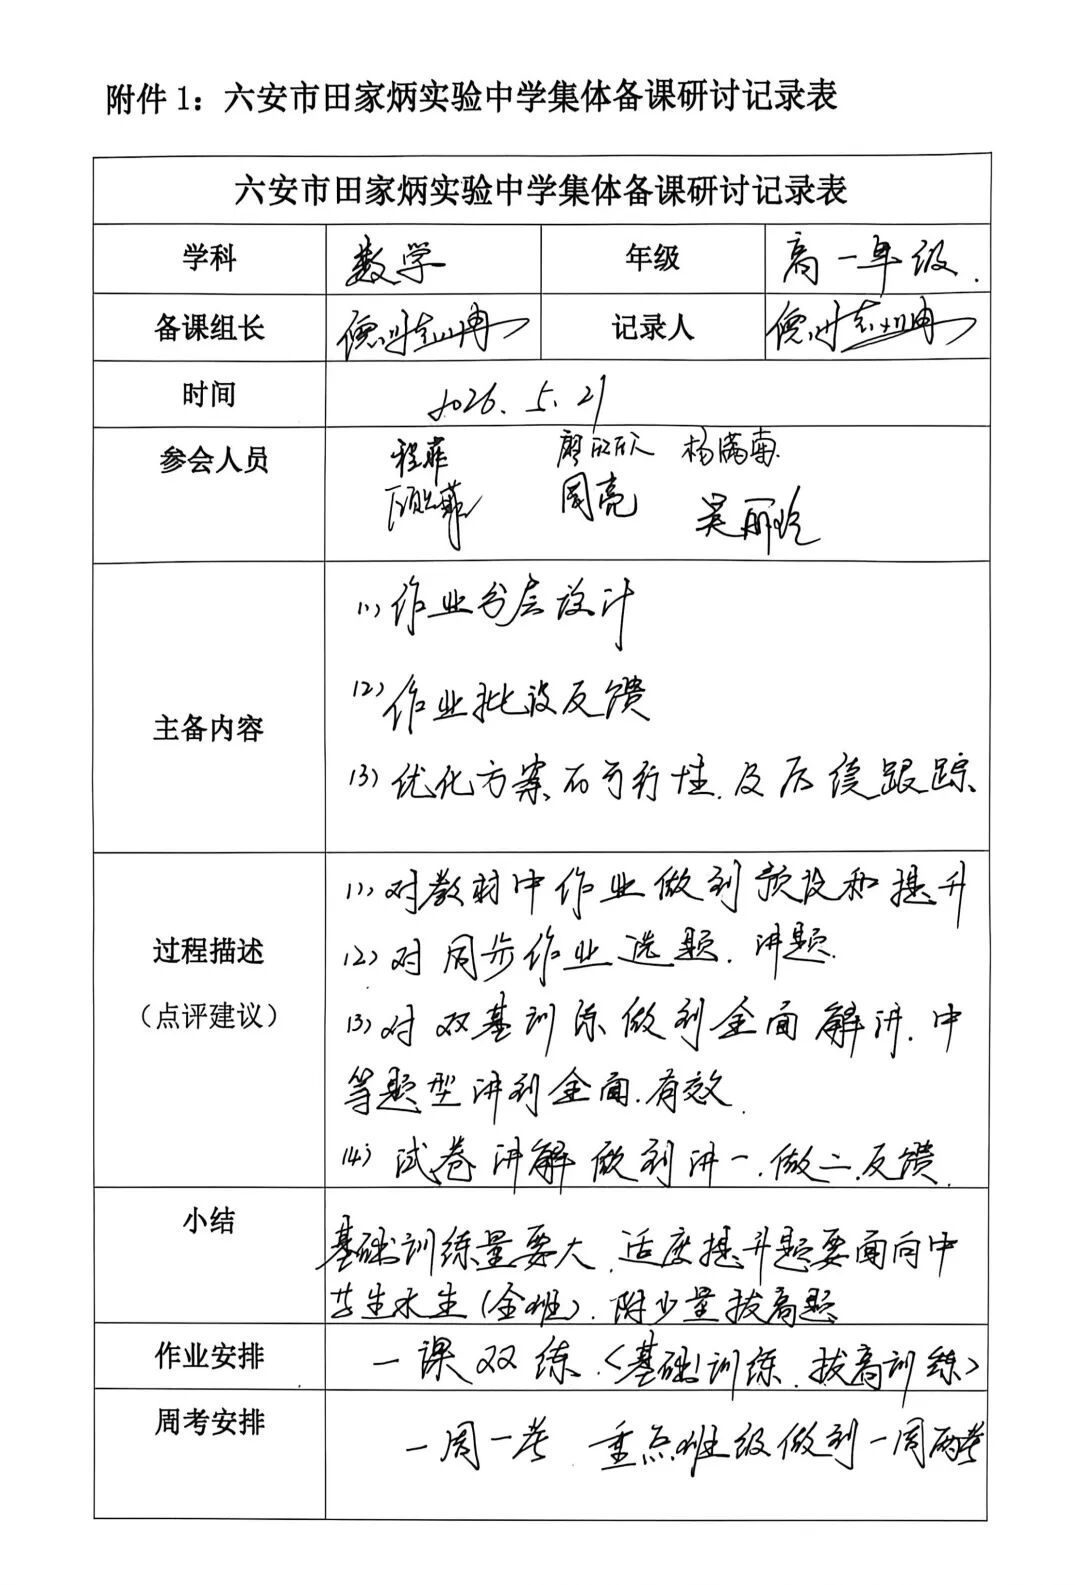 附件 1：六安市田家炳实验中学集体备课研讨记录表
六安市田家炳实验中学集体备课研讨记录表
学科 数学 年级 高一年级.
备课组长 记录人
时间 2026.5.21
参会人员 程菲 廖欣 杨满菊
周亮 吴丽玲
(1) 作业分层设计
(2) 作业批改反馈
主备内容
(3) 优化方案的可行性.及后续跟踪
(1) 对教材中作业做到预设和提升
过程描述
(2) 对同步作业选题.讲题.
（点评建议）
(3) 对双基训练做到全面解讲.中
等题型讲到全面.有效.
(4) 试卷讲解做到讲一.做二.反馈.
小结
基础训练量要大.适度提升题要面向中
等生水生(全班).附少量拔高题
作业安排 一课双练.<基础训练.拔高训练>
周考安排 一周一考 重点班级做到一周两考